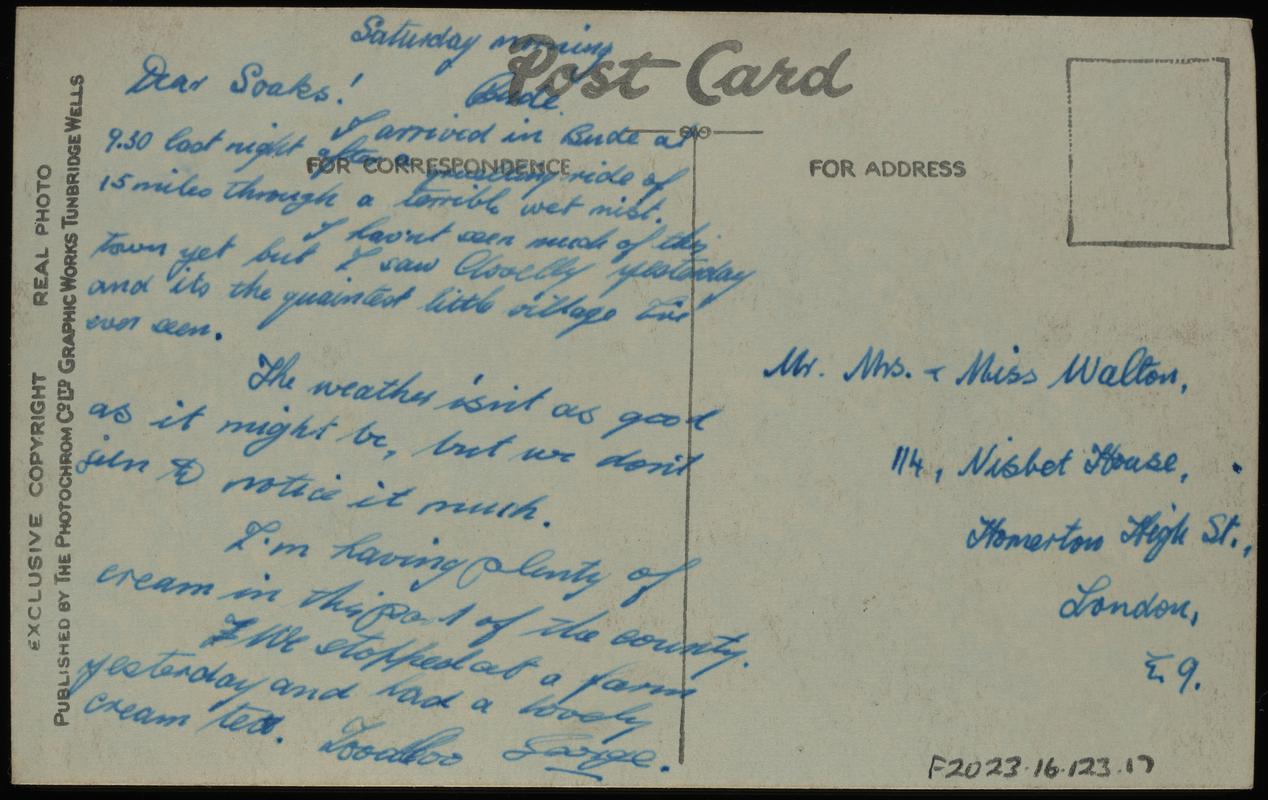 Post Card
FOR CORRESPONDENCE
FOR ADDRESS
EXCLUSIVE COPYRIGHT REAL PHOTO
PUBLISHED BY THE PHOTOCHROM CO LTD GRAPHIC WORKS TUNBRIDGE WELLS
Saturday morning
Bude
Dear Soaks!
I arrived in Bude at
9.30 last night after a ride of
15 miles through a terrible wet mist.
I hav'nt seen much of this
town yet but I saw Clovelly yesterday
and its the quaintest little village I've
ever seen.
The weather is'nt as good
as it might be, but we don't
seem to notice it much.
I'm having plenty of
cream in this part of the county.
We stopped at a farm
yesterday and had a lovely
cream tea. Toodloo George.
Mr. Mrs. & Miss Walton,
114, Nisbet House,
Homerton High St.,
London,
E.9.
F2023.16.123.17